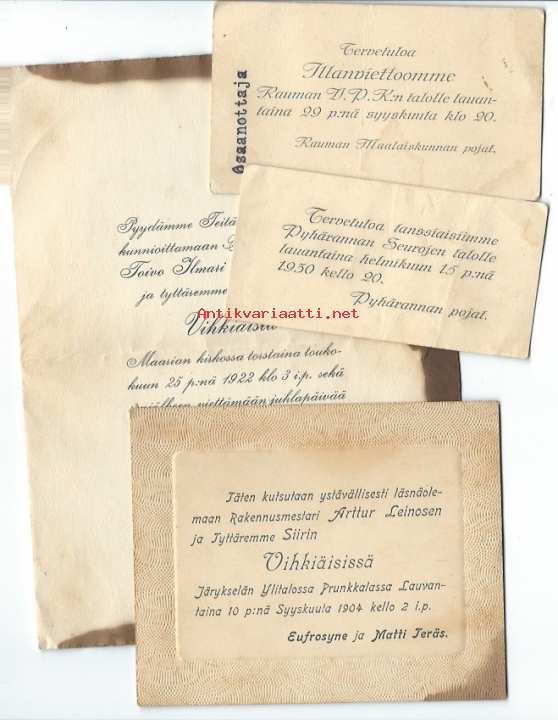 Tervetuloa
Illanviettoomme
Rauman V.P.K:n talolle lauan-
taina 29 p:nä syyskuuta klo 20.
Rauman Maalaiskunnan pojat.
Osaanottaja
Tervetuloa tanssiaisiimme
Pyhärannan Seurojen talolle
lauantaina helmikuun 15 p:nä
1930 kello 20.
Pyhärannan pojat.
Antikvariaatti.net
Pyydämme Teitä
kunnioittamaan
Toivo Ilmari
ja tyttäremme
Vihkiäistä
Maarian kirkossa torstaina touko-
kuun 25 p:nä 1922 klo 3 i.p. sekä
viettämään juhlapäivää
Täten kutsutaan ystävällisesti läsnäole-
maan Rakennusmestari Arttur Leinosen
ja Tyttäremme Siirin
Vihkiäisissä
Järykselän Ylitalossa Prunkkalassa Lauvan-
taina 10 p:nä Syyskuuta 1904 kello 2 i.p.
Eufrosyne ja Matti Teräs.